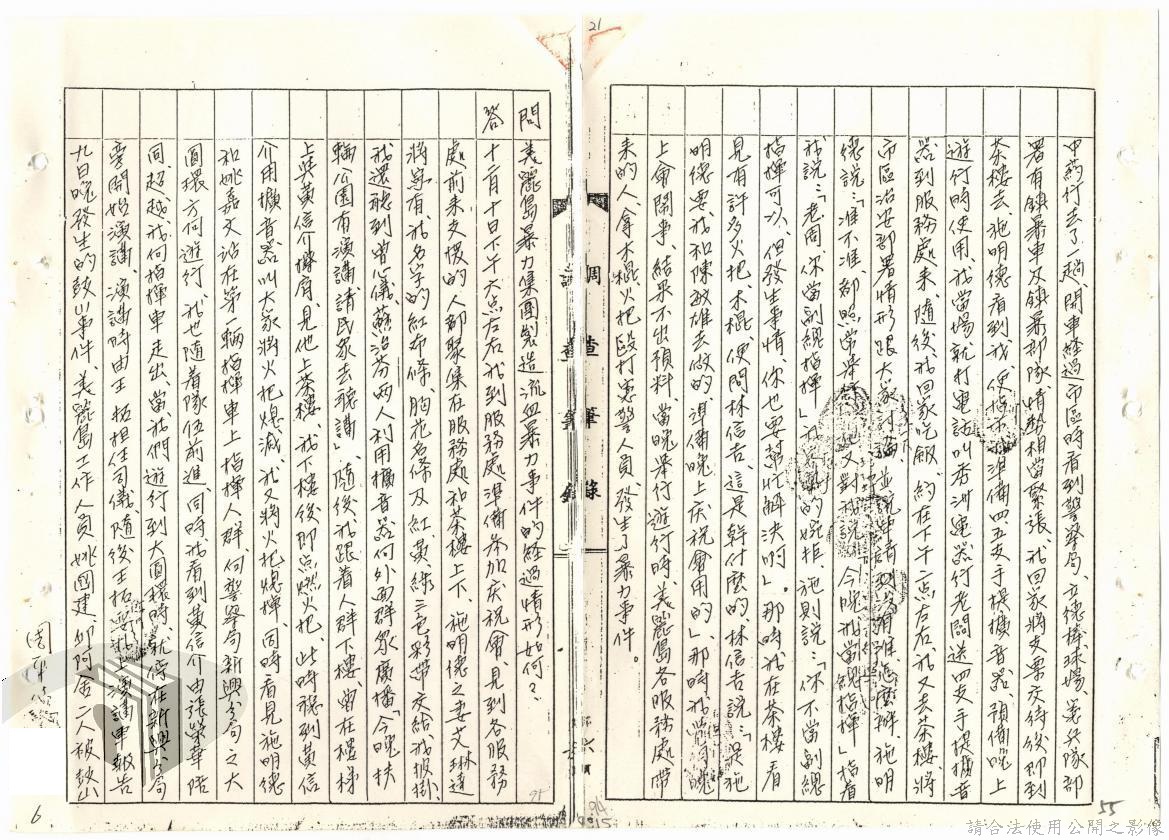 21
中葯行去了一趟、開車經過市區時看到警察局、立德棒球場、憲兵隊部
署有鎮暴車及鎮暴部隊、情勢相當緊張、我回家將支票交待後即到
茶樓去、施明德看到我、便指示我準備四、五支手提擴音器、預備晚上
遊行時使用、我當場就打電話叫秀洲電器行老闆送四支手提擴音
器到服務處來、隨後、我回家吃飯、約在下午二点左右、我又去茶樓、將
市區治安部署情形跟大家討論、並說
怎麼辦、施明
德說:「准不准、都照常舉行
又對我說:今晚我當總指揮」指着
我說:「老周你當副總指揮」
婉拒、施則說:「你不當副總
指揮可以、但發生事情、你也要幫忙解決啊」。那時我在茶樓、看
見有許多火把、木棍、便問林信吉、這是幹什麼的、林信吉說:「是施
明德要我和陳敏雄去做的、準備晚上庆祝會用的」、那時、我
晚
上會鬧事、結果不出預料、當晚舉行遊行時、美麗島各服務處帶
來的人、拿木棍火把毆打憲警人員、發生了暴力事件。
問
美麗島暴力集團製造流血暴力事件的經過情形如何?
答
十二月十日下午六点左右、我到服務處、準備参加庆祝會、見到各服務
處前來支援的人都聚集在服務處和茶樓上下、施明德之妻艾琳達
將寫有我名字的紅布條、胸花名條及紅、黃、綠三色彩帶交給我披掛、
我還聽到曾心儀、蘇治芬兩人利用擴音器向外面群眾廣播「今晚扶
輪公園有演講請民眾去聽講」、隨後我跟着人群下樓、曾在樓梯
上與黃信介擦肩、見他上茶樓、我下樓後即点燃火把、此時聽到黃信
介用擴音器、叫大家將火把熄滅、我又將火把熄掉、同時看見施明德
和姚嘉文站在第一輛指揮車上指揮人群、向警察局新興分局之大
圓環方向遊行、我也隨着隊伍前進、同時我看到黃信介由張榮華陪
同、超越我向指揮車走出、當我們遊行到大圓環時、就停在新興分局
旁開始演講、演講時由王拓担任司儀、隨後王拓要我上演講車報告
九日晚發生的鼓山事件、美麗島工作人員姚國建、邱阿舍二人被鼓山
調查筆錄
調查筆錄
周平德
6
95
94
55
請合法使用公開之影像